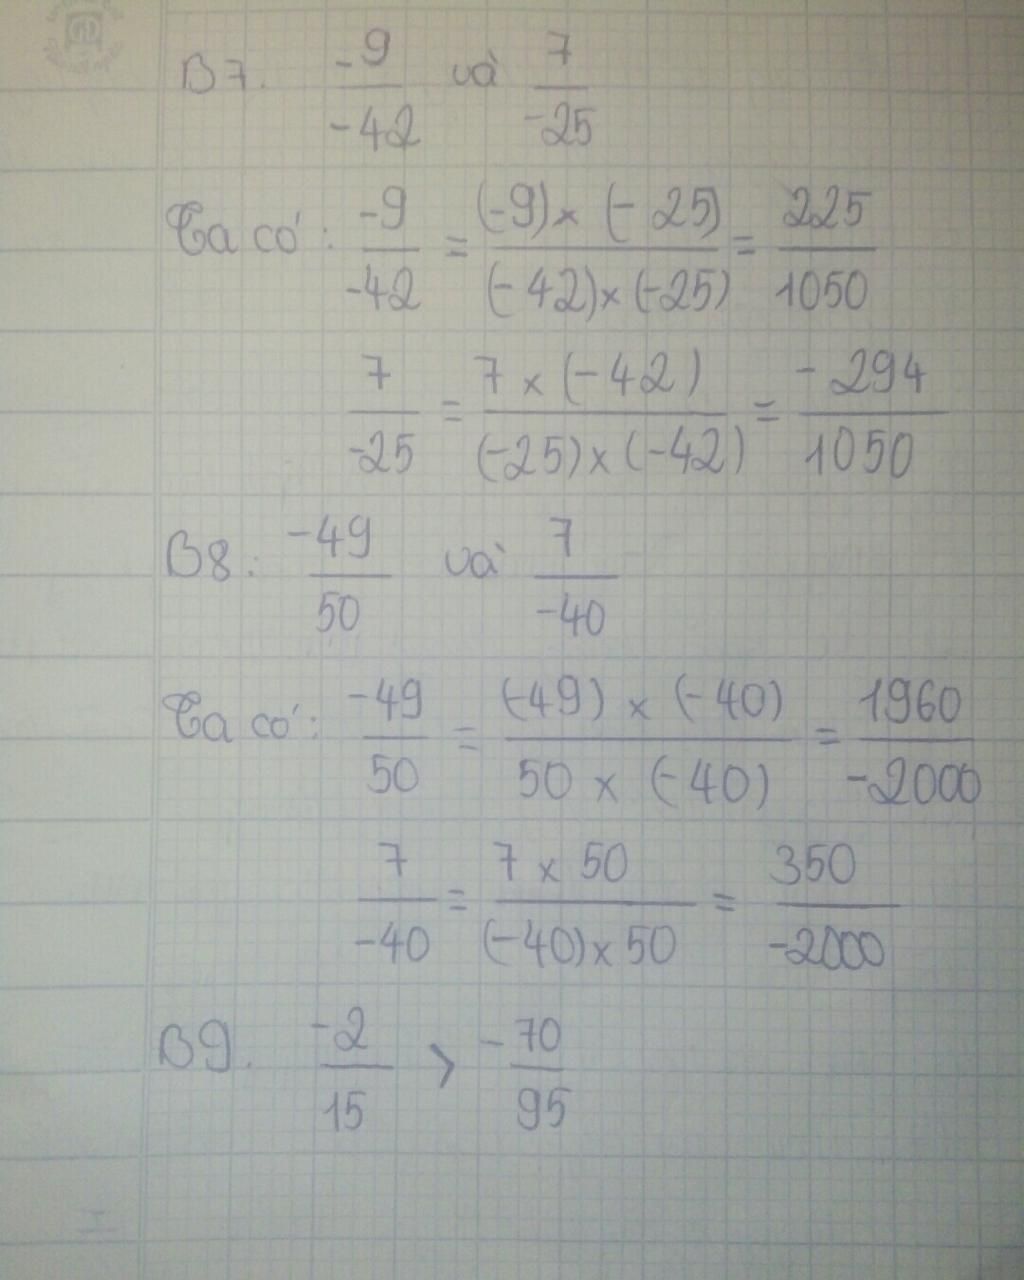 B7. -9/-42 và 7/-25
Ta có: -9/-42 = (-9)x(-25)/(-42)x(-25) = 225/1050
7/-25 = 7x(-42)/(-25)x(-42) = -294/1050
B8: -49/50 và 7/-40
Ta có: -49/50 = (-49)x(-40)/50x(-40) = 1960/-2000
7/-40 = 7x50/(-40)x50 = 350/-2000
B9. -2/15 > -70/95